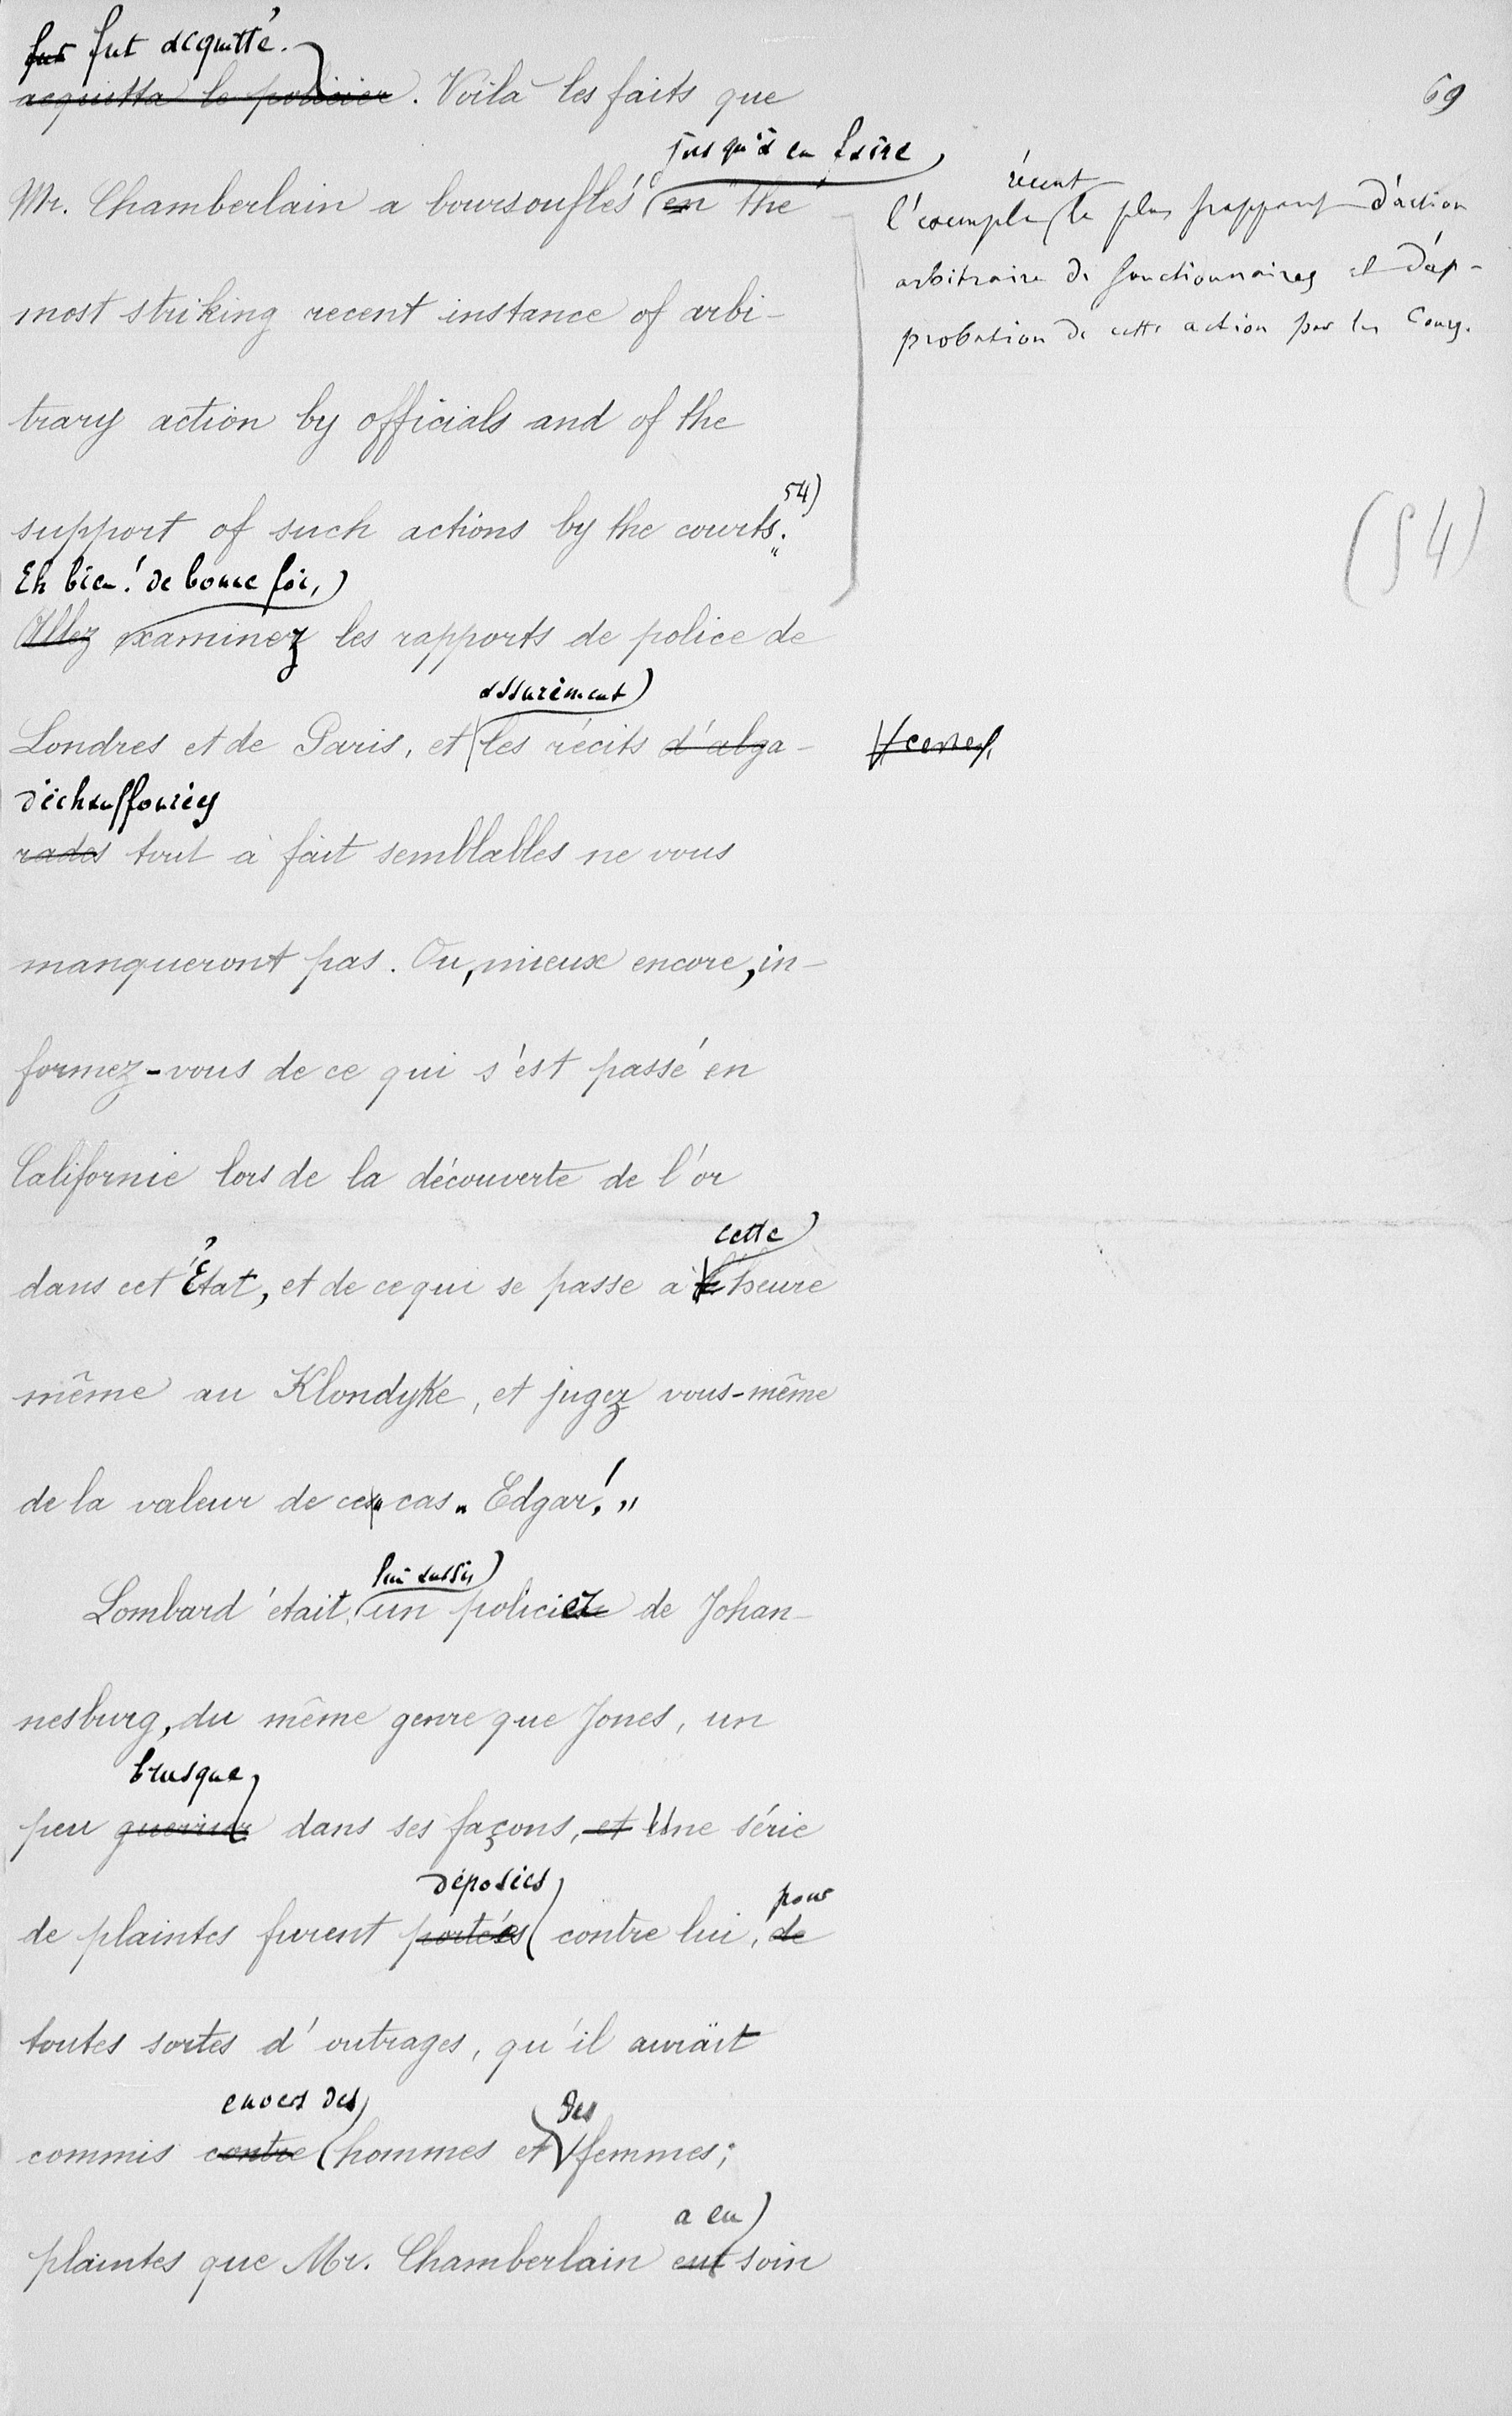 fut fut acquitté.
acquitta le policier. Voilà les faits que
69
jusqu'à en faire
Mr. Chamberlain a boursouflés en "the
récent
l'exemple le plus frappant d'action
arbitraire de fonctionnaires et d'ap-
probation de cette action par les Cours.
most striking recent instance of arbi-
trary action by officials and of the
support of such actions by the courts." 54)
(54)
Eh bien! de bonne foi,
Allez examinez les rapports de police de
assurément
Londres et de Paris, et les récits d'alga-
d'échauffourées
rades tout à fait semblables ne vous
manqueront pas. Ou, mieux encore, in-
formez-vous de ce qui s'est passé en
Californie lors de la découverte de l'or
cette
dans cet État, et de ce qui se passe à heure
même au Klondyke, et jugez vous-même
de la valeur de ce "cas" Edgar!"
lui aussi
Lombard était, un policier de Johan-
nesburg, du même genre que Jones, un
brusque
peu guerrier dans ses façons, et Une série
déposées
pour
de plaintes furent portées contre lui, de
toutes sortes d'outrages, qu'il aurait
envers des
des
commis contre hommes et femmes;
a eu
plaintes que Mr. Chamberlain eut soin